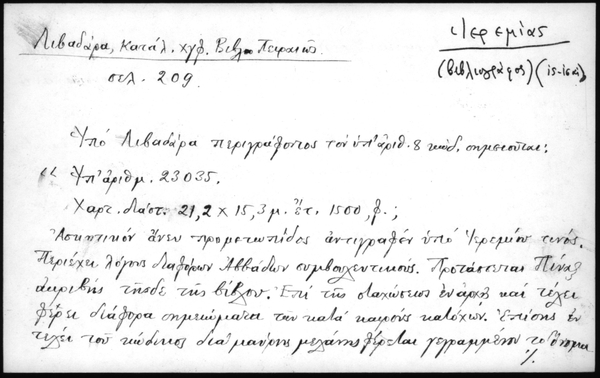 Λιβαδάρα, Κατάλ. χγφ. Βιβλ. Πειραιῶς
σελ. 209.
Ἱερεμίας
(βιβλιογράφος)
Ὑπό Λιβαδάρα περιγράφοντος τόν ὑπ' ἀριθ. 8 κώδ. σημειοῦται:
“ Ὑπ' ἀριθμ. 23035.
Χαρτ. διάστ. 21,2 x 15,3 μ. ἔτ. 1500, φ. ;
Ἀσκητικόν ἄνευ προμετωπίδος ἀντιγραφέν ὑπό Ἱερεμίου τινός.
Περιέχει λόγους διαφόρων Ἀββάδων συμβουλευτικούς. Προτάσσεται Πίναξ
ἀκριβής τῆσδε τῆς βίβλου. Ἐπί τῆς σταχώσεως ἐν ἀρχῇ καί τέλει
φέρει διάφορα σημειώματα τῶν κατά καιρούς κατόχων. Ἐπίσης ἐν
τέλει τοῦ κώδικος διά μαύρης μελάνης φέρεται γεγραμμένον τό ὄνομα
./.